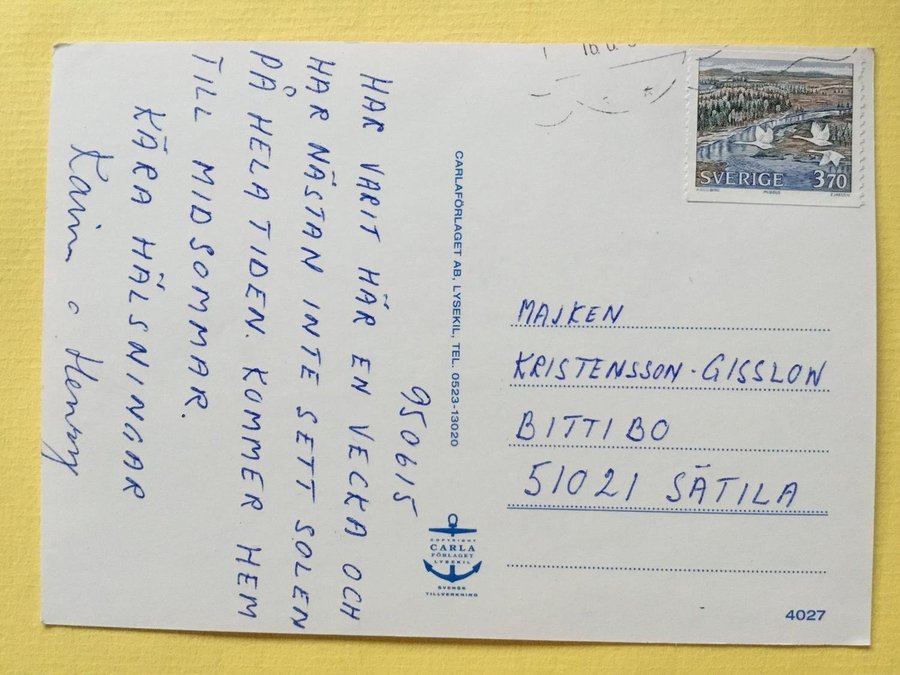 950615
HAR VARIT HÄR EN VECKA OCH
HAR NÄSTAN INTE SETT SOLEN
PÅ HELA TIDEN. KOMMER HEM
TILL MIDSOMMAR.
KÄRA HÄLSNINGAR
Karin o Henry
CARLAFÖRLAGET AB, LYSEKIL, TEL. 0523-13020
SVERIGE 3.70
MAJKEN
KRISTENSSON-GISSLOW
BITTIBO
51021 SÄTILA
COPYRIGHT
CARLA
FÖRLAGET
LYSEKIL
SVENSK
TILLVERKNING
4027